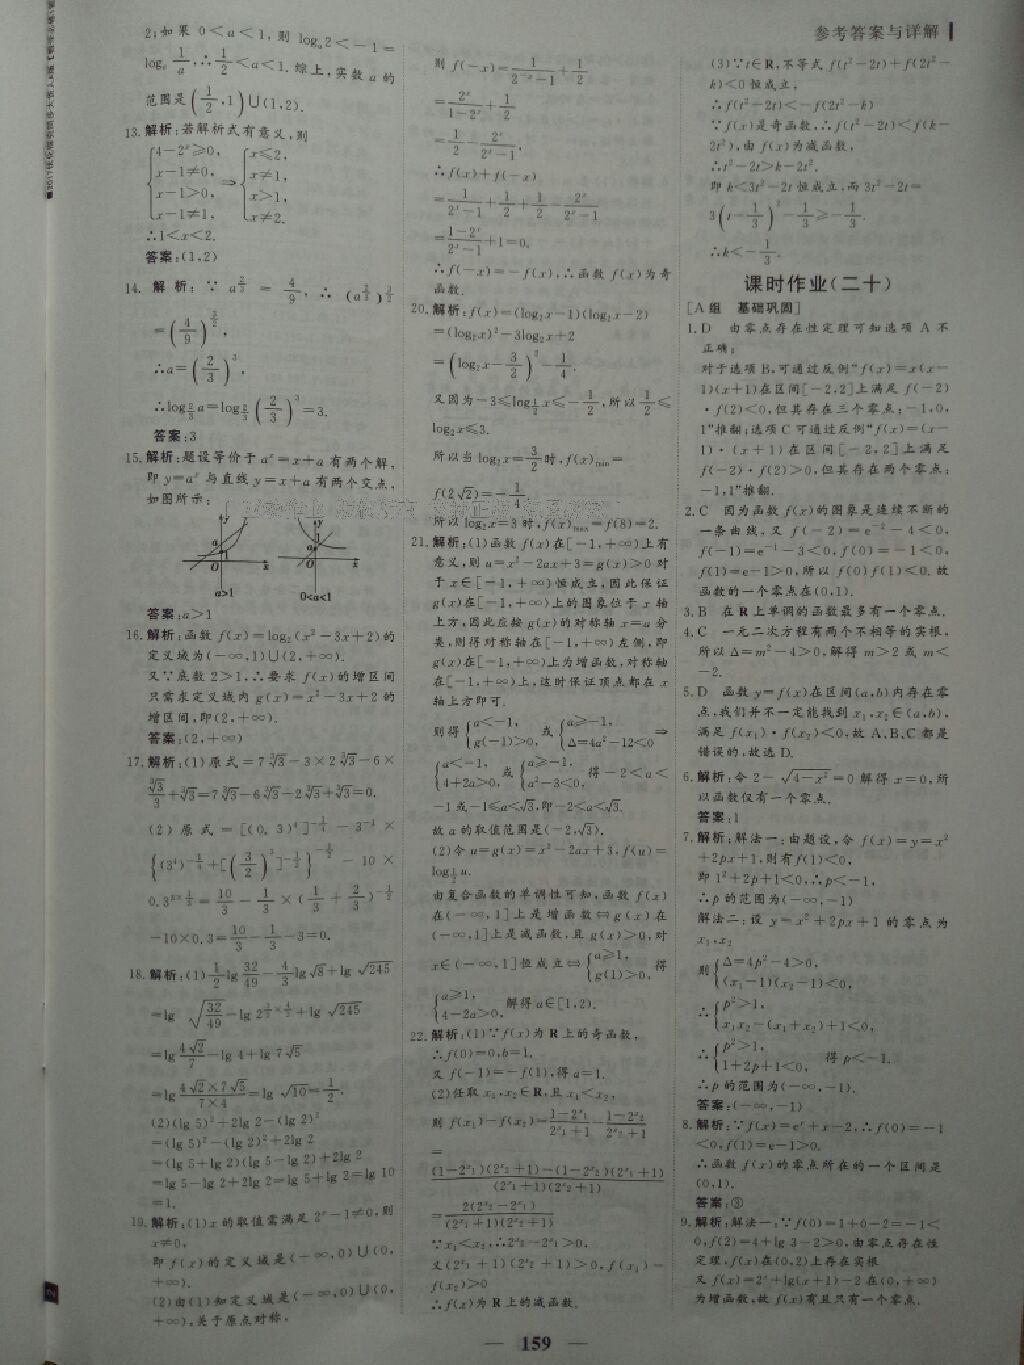 参考答案与详解
2;如果 0<a<1, 则 logₐ2<-1=
logₐ 1/a,∴1/2<a<1. 综上,实数 a 的
范围是(1/2,1)∪(1,2).
13. 解析:若解析式有意义,则
{4-2ˣ≥0, x-1≠0, x-1>0, x-1≠1, ⇒ {x≤2, x≠1, x>1, x≠2.
∴1<x<2.
答案:(1,2)
14. 解析:∵a^(2/3)=4/9,∴(a^(2/3))^(3/2)
=(4/9)^(3/2),
∴a=(2/3)³,
∴log_(2/3) a=log_(2/3) (2/3)³=3.
答案:3
15. 解析:题设等价于 aˣ=x+a 有两个解,
即 y=aˣ 与直线 y=x+a 有两个交点,
如图所示:
y a 1 O x
a>1
y a O x
0<a<1
答案:a>1
16. 解析:函数 f(x)=log₂(x²-3x+2)的
定义域为(-∞,1)∪(2,+∞).
又∵底数 2>1,∴要求 f(x)的增区间
只需求定义域内 g(x)=x²-3x+2 的
增区间,即(2,+∞).
答案:(2,+∞)
17. 解析:(1)原式=7∛3-3×2∛3-6×
∛3/3+∛3=7∛3-6∛3-2∛3+∛3=0.
(2)原式=[(0.3)⁴]^(-1/4)-3⁻¹×
{(3⁴)^(-1/4)+[(3/2)³]^(-1/3)}^(-1/2)-10×
=10/3-1/3×(1/3+2/3)^(-1/2)
-10×0.3=10/3-1/3-3=0.
18. 解析:(1)1/2 lg 32/49-4/3 lg √8+lg √245
=lg √(32/49)-lg 2^(3/2×4/3)+lg √245
=lg 4√2/7-lg 4+lg 7√5
=lg (4√2×7√5)/(7×4)=lg √10=1/2.
(2)(lg 5)²+2lg 2-(lg 2)²
=(lg 5)²-(lg 2)²+2lg 2
=(lg 5+lg 2)(lg 5-lg 2)+2lg 2
=lg 5-lg 2+2lg 2=lg 5+lg 2=lg 10
=1.
19. 解析:(1)x 的取值需满足 2ˣ-1≠0,则
x≠0,
即 f(x)的定义域是(-∞,0)∪(0,
+∞).
(2)由(1)知定义域是(-∞,0)∪(0,
+∞),关于原点对称.
则 f(-x)=1/(2⁻ˣ-1)+1/2
=2ˣ/(1-2ˣ)+1/2
=1/2-2ˣ/(2ˣ-1),
∴f(x)+f(-x)
=1/(2ˣ-1)+1/2+1/2-2ˣ/(2ˣ-1)
=(1-2ˣ)/(2ˣ-1)+1=0.
∴f(-x)=-f(x),∴函数 f(x)为奇
函数.
20. 解析:f(x)=(log₂x-1)(log₂x-2)
=(log₂x)²-3log₂x+2
=(log₂x-3/2)²-1/4.
又因为-3≤log_(1/2) x≤-1/2,所以1/2≤
log₂x≤3.
所以当 log₂x=3/2时,f(x)min=
f(2√2)=-1/4,
所以 log₂x=3 时,f(x)max=f(8)=2.
21. 解析:(1)函数 f(x)在[-1,+∞)上有
意义,则 u=x²-2ax+3=g(x)>0 对
于 x∈[-1,+∞)恒成立,因此保证
g(x)在[-1,+∞)上的图象位于 x 轴
上方,因此应按 g(x)的对称轴 x=a 分
类,则得对称轴在[-1,+∞)左侧,即
g(x)在[-1,+∞)上为增函数,对称轴
在[-1,+∞)上,这时保证顶点都在 x
轴上方即可.
则得{a<-1, g(-1)>0, 或{a≥-1, Δ=4a²-12<0⇒
{a<-1, 4+2a>0, 或{a≥-1, a²-3<0, 得-2<a<
-1或-1≤a<√3,即-2<a<√3.
故 a 的取值范围是(-2,√3).
(2)令 u=g(x)=x²-2ax+3,f(u)=
log_(1/2) u.
由复合函数的单调性可知,函数 f(x)
在(-∞,1]上是增函数⇔g(x)在
(-∞,1]上是减函数,且 g(x)>0,对
x∈(-∞,1]恒成立⇔{a≥1, g(1)>0, 得
{a≥1, 4-2a>0, 解得 a∈[1,2).
22. 解析:(1)∵f(x)为 R 上的奇函数,
∴f(0)=0,b=1.
又 f(-1)=-f(1),得 a=1.
(2)任取 x₁,x₂∈R,且 x₁<x₂,
则 f(x₁)-f(x₂)=(1-2^x₁)/(2^x₁+1)-(1-2^x₂)/(2^x₂+1)
=
[(1-2^x₁)(2^x₂+1)-(1-2^x₂)(2^x₁+1)]/[(2^x₁+1)(2^x₂+1)]
=2(2^x₂-2^x₁)/[(2^x₁+1)(2^x₂+1)]
∵x₁<x₂,∴2^x₂-2^x₁>0,
又(2^x₁+1)(2^x₂+1)>0,f(x₁)-
f(x₂)>0
∴f(x)为 R 上的减函数.
(3)∵t∈R,不等式 f(t²-2t)+f(2t²-
k)<0 恒成立,
∴f(t²-2t)<-f(2t²-k)
∵f(x)是奇函数,∴f(t²-2t)<f(k-
2t²),由 f(x)为减函数,
∴t²-2t>k-2t².
即 k<3t²-2t 恒成立,而 3t²-2t=
3(t-1/3)²-1/3≥-1/3.
∴k<-1/3.
课时作业(二十)
[A 组 基础巩固]
1. D 由零点存在性定理可知选项 A 不
正确;
对于选项 B,可通过反例“f(x)=x(x-
1)(x+1)在区间[-2,2]上满足 f(-2)
·f(2)<0,但其存在三个零点:-1,0,
1”推翻;选项 C 可通过反例“f(x)=(x-
1)·(x+1)在区间[-2,2]上满足
f(-2)·f(2)>0,但其存在两个零点:
-1,1”推翻.
2. C 因为函数 f(x)的图象是连续不断的
一条曲线,又 f(-2)=e⁻²-4<0,
f(-1)=e⁻¹-3<0,f(0)=-1<0,
f(1)=e-1>0,所以 f(0)f(1)<0.故
函数的一个零点在(0,1).
3. B 在 R 上单调的函数最多有一个零点.
4. C 一元二次方程有两个不相等的实根,
所以 Δ=m²-4>0,解得 m>2 或 m<
-2.
5. D 函数 y=f(x)在区间(a,b)内存在零
点,我们并不一定能找到 x₁,x₂∈(a,b),
满足 f(x₁)·f(x₂)<0,故 A、B、C 都是
错误的,故选 D.
6. 解析:令 2-√(4-x²)=0 解得 x=0,所
以函数仅有一个零点.
答案:1
7. 解析:解法一:由题设,令 f(x)=y=x²
+2px+1,则有 f(1)<0,
即 1²+2p+1<0,∴p<-1,
∴p 的范围为(-∞,-1)
解法二:设 y=x²+2px+1 的零点为
x₁,x₂
则{Δ=4p²-4>0, (x₁-1)(x₂-1)<0,
∴{p²>1, x₁x₂-(x₁+x₂)+1<0,
∴{p²>1, 1+2p+1<0, 得 p<-1.
∴p 的范围为(-∞,-1).
答案:(-∞,-1)
8. 解析:∵f(x)=eˣ+x-2,∴f(0)=-1
<0,f(1)=e-1>0.
∴函数 f(x)的零点所在的一个区间是
(0,1).
答案:③
9. 解析:解法一:∵f(0)=1+0-2=-1<
0,f(2)=4+lg 3-2>0,由零点存在性
定理,f(x)在(0,2)上存在实根
又 f(x)=2ˣ+lg(x+1)-2 在(0,+∞)
为增函数,故 f(x)有且只有一个零点.
— 159 —